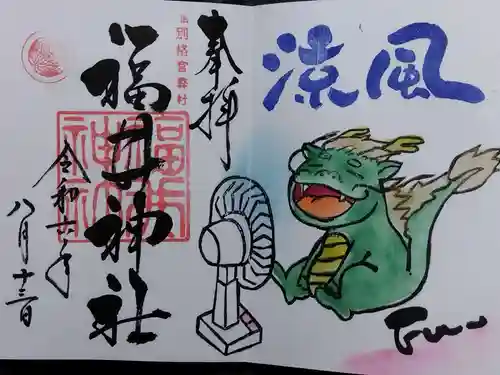 奉拝
旧別格官幣社
福井神社
福井
神社
令和六年
八月十三日
涼風